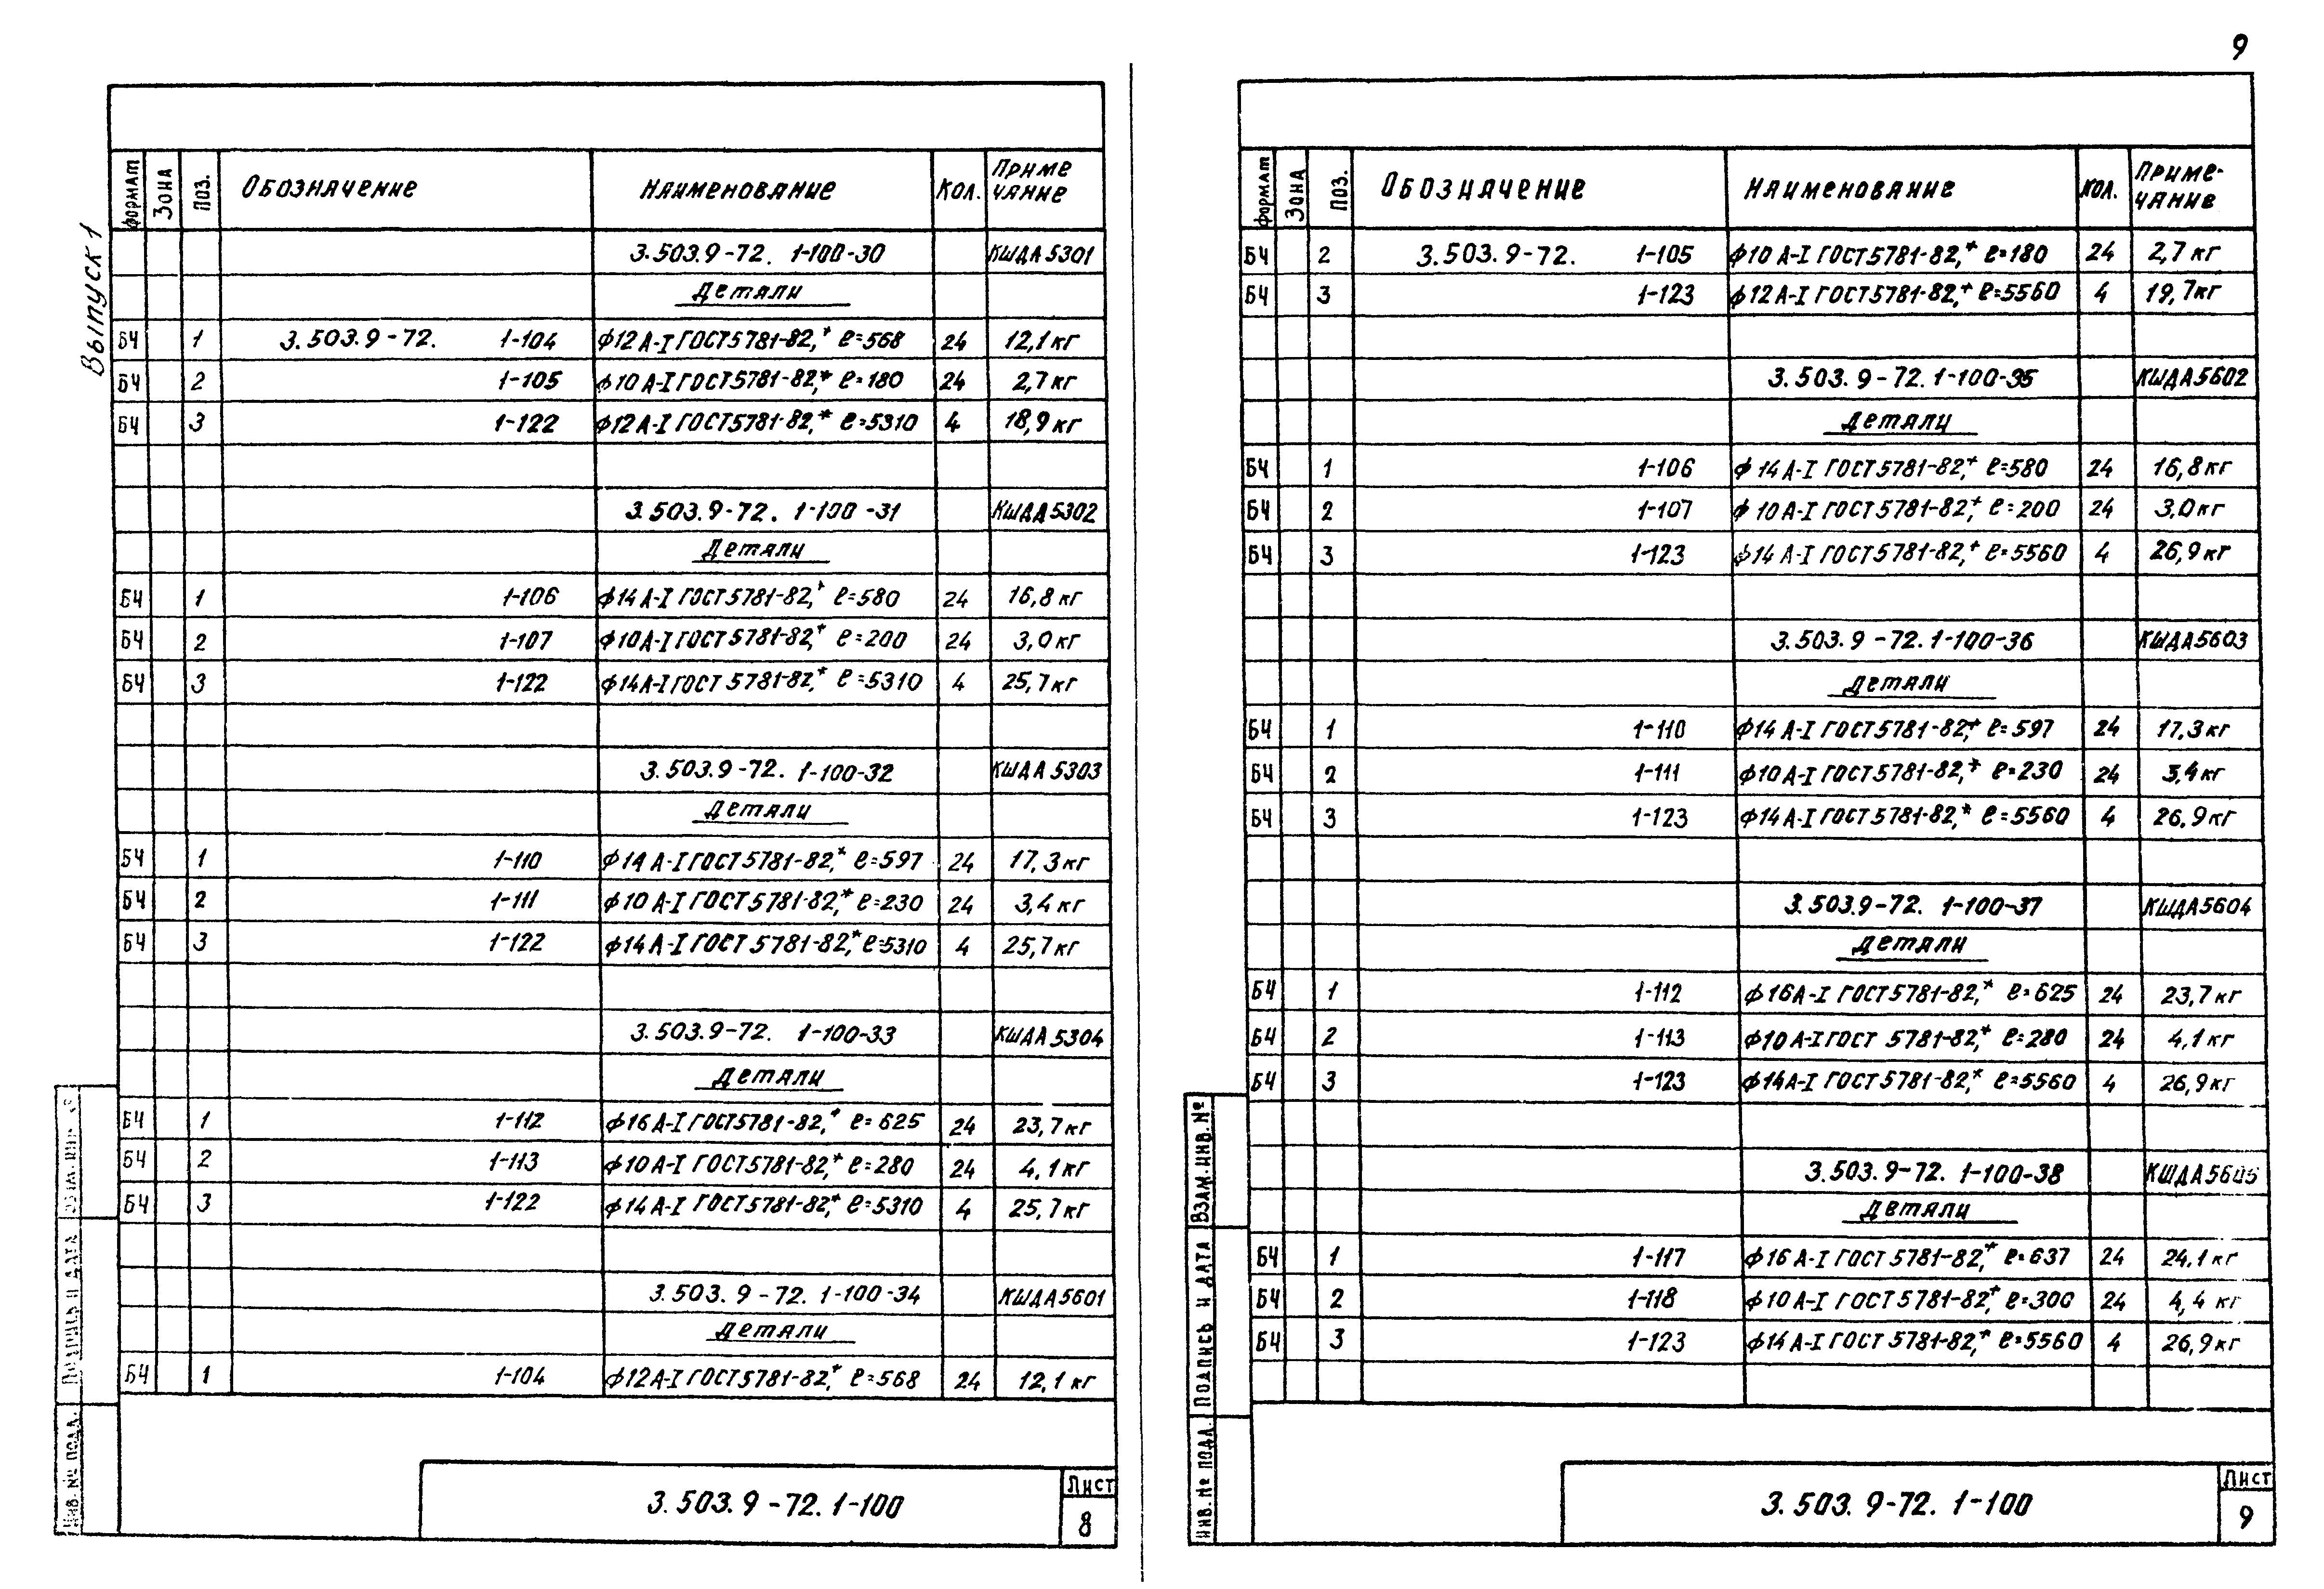 9
Выпуск 1
Формат Зона Поз. Обозначение Наименование Кол. Приме чание
3.503.9-72. 1-100-30 КШДА5301
Детали
БЧ 1 3.503.9-72. 1-104 ф12А-I ГОСТ5781-82,* l=568 24 12,1кг
БЧ 2 1-105 ф10А-I ГОСТ5781-82,* l=180 24 2,7кг
БЧ 3 1-122 ф12А-I ГОСТ5781-82,* l=5310 4 18,9кг
3.503.9-72. 1-100-31 КШДА5302
Детали
БЧ 1 1-106 ф14А-I ГОСТ5781-82,* l=580 24 16,8кг
БЧ 2 1-107 ф10А-I ГОСТ5781-82,* l=200 24 3,0кг
БЧ 3 1-122 ф14А-I ГОСТ5781-82,* l=5310 4 25,7кг
3.503.9-72. 1-100-32 КШДА5303
Детали
БЧ 1 1-110 ф14А-I ГОСТ5781-82,* l=597 24 17,3кг
БЧ 2 1-111 ф10А-I ГОСТ5781-82,* l=230 24 3,4кг
БЧ 3 1-122 ф14А-I ГОСТ5781-82,* l=5310 4 25,7кг
3.503.9-72. 1-100-33 КШДА5304
Детали
БЧ 1 1-112 ф16А-I ГОСТ5781-82,* l=625 24 23,7кг
БЧ 2 1-113 ф10А-I ГОСТ5781-82,* l=280 24 4,1кг
БЧ 3 1-122 ф14А-I ГОСТ5781-82,* l=5310 4 25,7кг
3.503.9-72. 1-100-34 КШДА5601
Детали
БЧ 1 1-104 ф12А-I ГОСТ5781-82,* l=568 24 12,1кг
Инв. № подл. Подпись и дата Взам. инв. №
3.503.9-72. 1-100
Лист
8
Формат Зона Поз. Обозначение Наименование Кол. Приме-чание
БЧ 2 3.503.9-72. 1-105 ф10А-I ГОСТ5781-82,* l=180 24 2,7кг
БЧ 3 1-123 ф12А-I ГОСТ5781-82,* l=5560 4 19,7кг
3.503.9-72. 1-100-35 КШДА5602
Детали
БЧ 1 1-106 ф14А-I ГОСТ5781-82,* l=580 24 16,8кг
БЧ 2 1-107 ф10А-I ГОСТ5781-82,* l=200 24 3,0кг
БЧ 3 1-123 ф14А-I ГОСТ5781-82,* l=5560 4 26,9кг
3.503.9-72. 1-100-36 КШДА5603
Детали
БЧ 1 1-110 ф14А-I ГОСТ5781-82,* l=597 24 17,3кг
БЧ 2 1-111 ф10А-I ГОСТ5781-82,* l=230 24 3,4кг
БЧ 3 1-123 ф14А-I ГОСТ5781-82,* l=5560 4 26,9кг
3.503.9-72. 1-100-37 КШДА5604
Детали
БЧ 1 1-112 ф16А-I ГОСТ5781-82,* l=625 24 23,7кг
БЧ 2 1-113 ф10А-I ГОСТ 5781-82,* l=280 24 4,1кг
БЧ 3 1-123 ф14А-I ГОСТ5781-82,* l=5560 4 26,9кг
3.503.9-72. 1-100-38 КШДА5605
Детали
БЧ 1 1-117 ф16А-I ГОСТ5781-82,* l=637 24 24,1кг
БЧ 2 1-118 ф10А-I ГОСТ5781-82,* l=300 24 4,4кг
БЧ 3 1-123 ф14А-I ГОСТ5781-82,* l=5560 4 26,9кг
Инв. № подл. Подпись и дата Взам. инв. №
3.503.9-72. 1-100
Лист
9